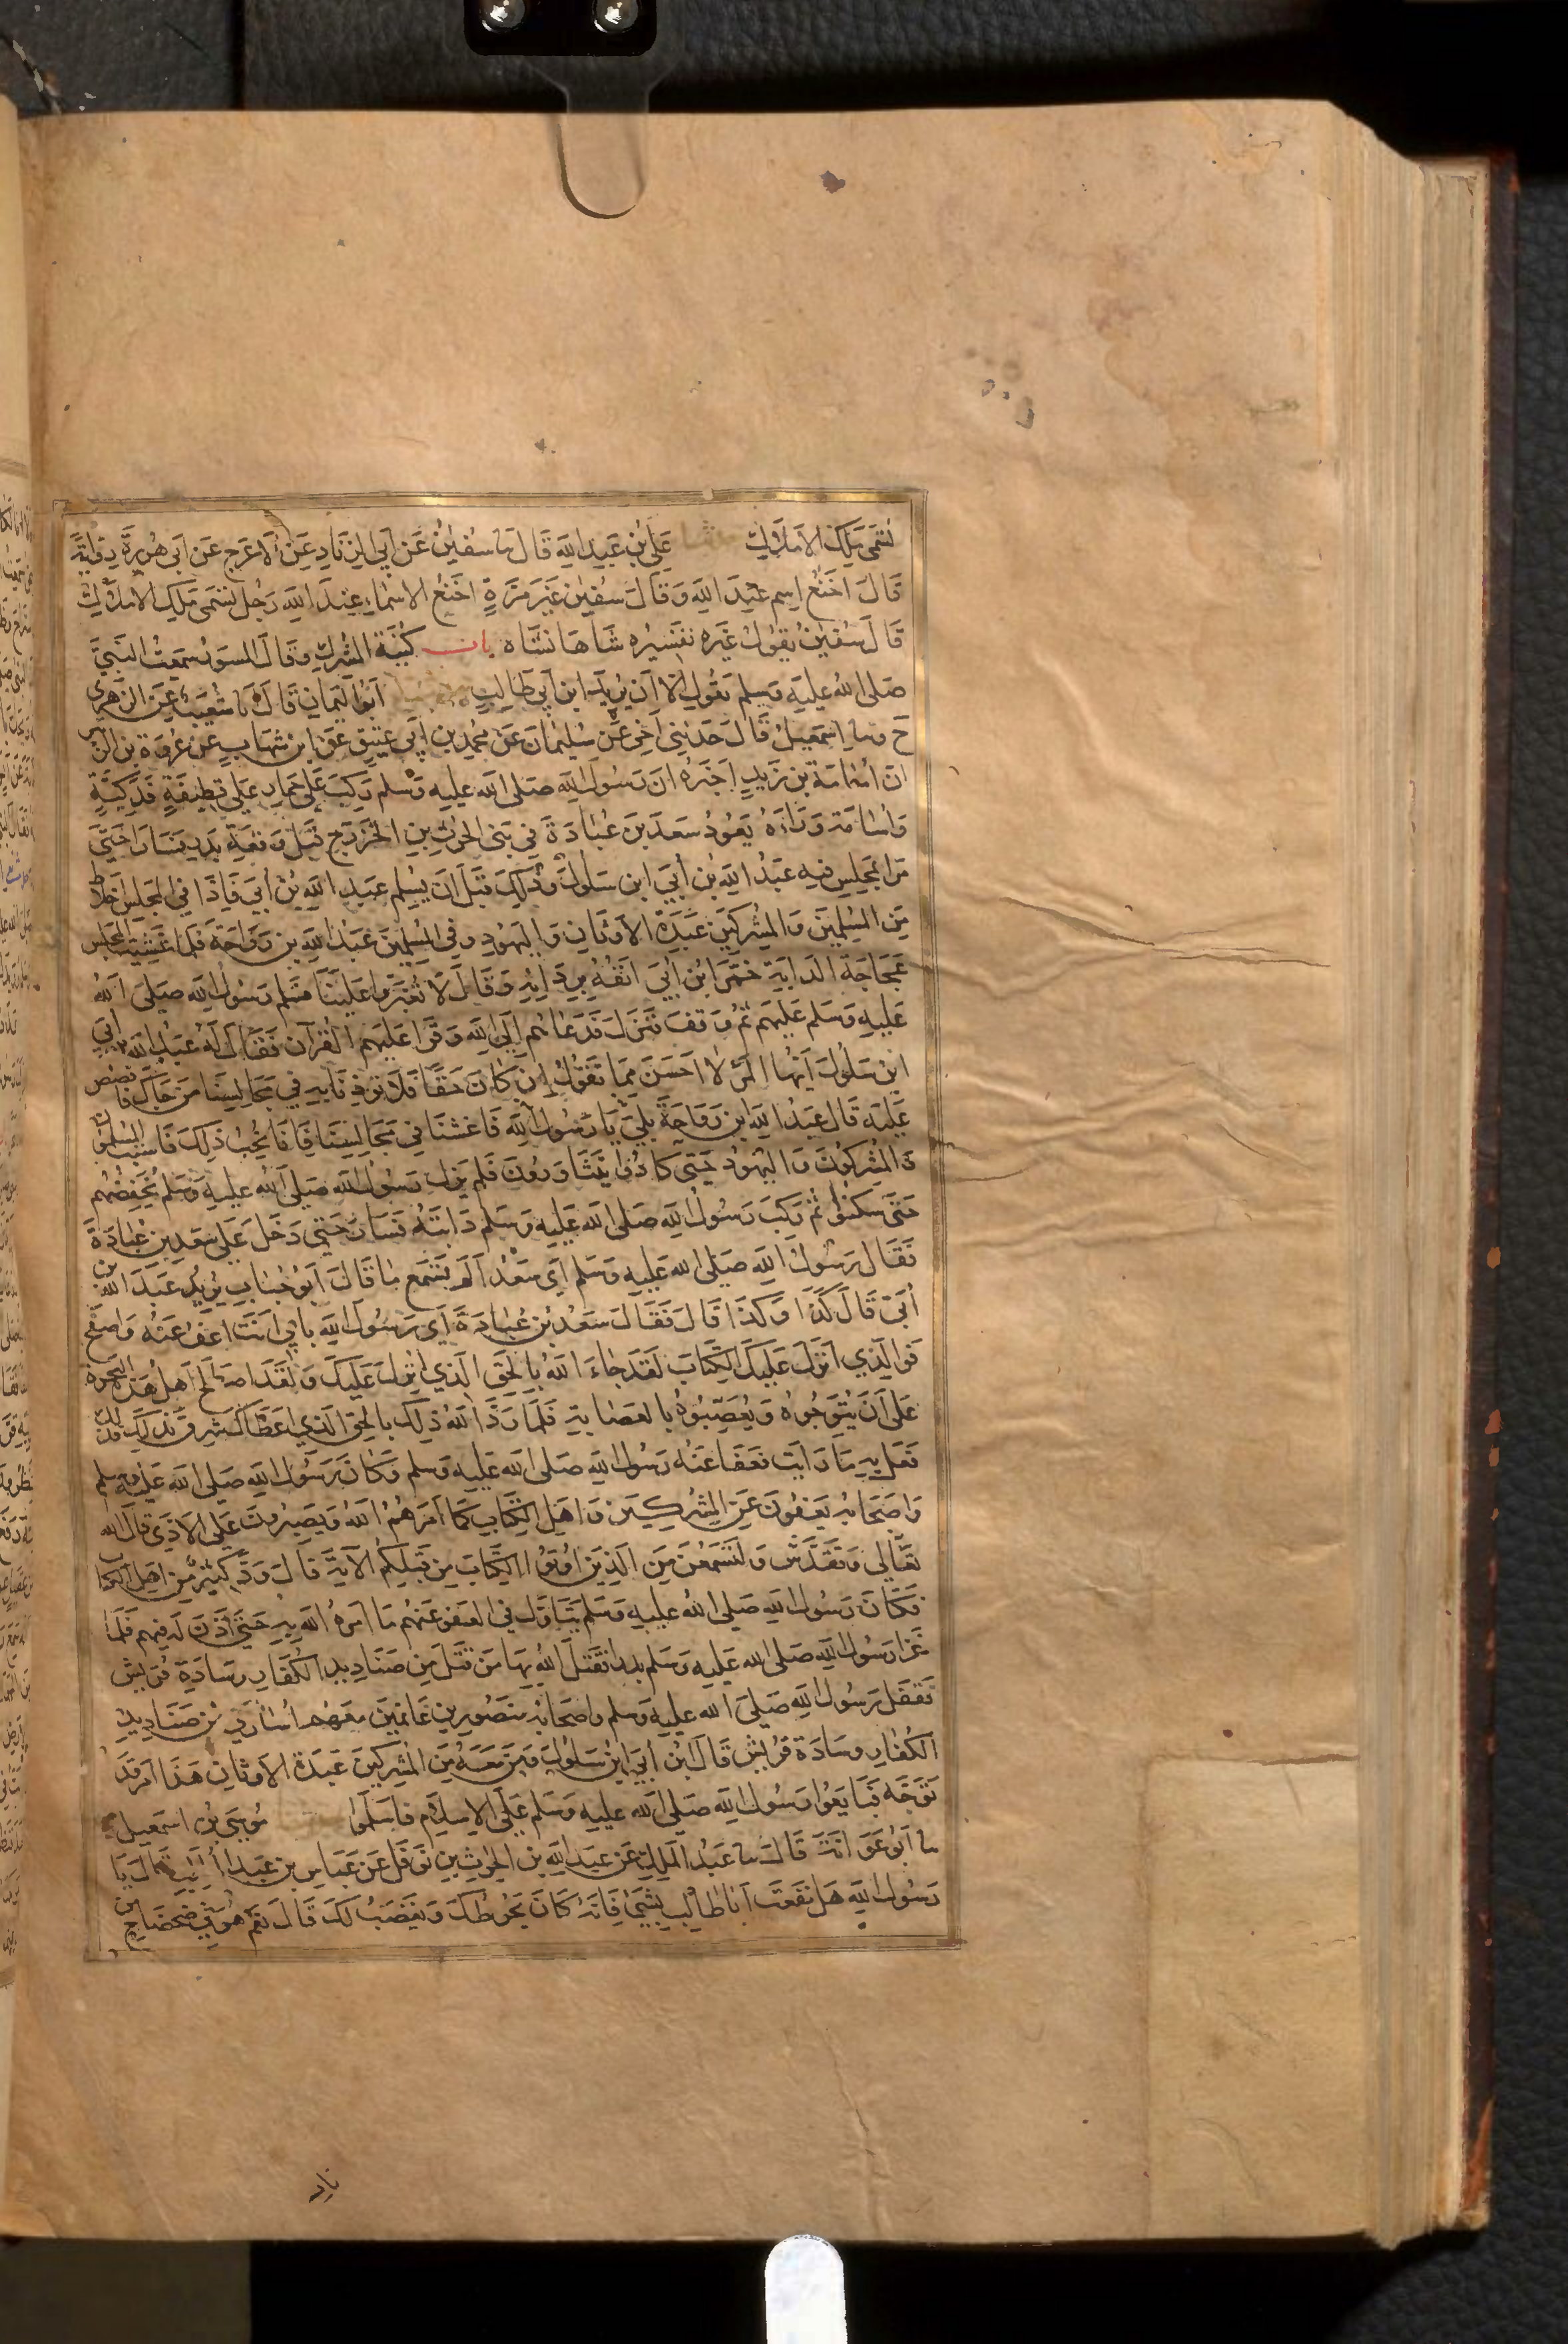 تسمى ملك الاملاك ثنا علي بن عبد الله قال ثنا سفين عن ابي الزناد عن الاعرج عن ابي هريرة رواية
قال اخنع اسم عند الله وقال سفين غير مرة اخنع الاسماء عند الله رجل تسمى ملك الاملاك
قال سفين يقول غيره تفسيره شاهانشاه باب كنية المشرك وقال المسور سمعت النبي
صلى الله عليه وسلم يقول الا ان يريد ابن ابي طالب ابو اليمان قال انا شعيب عن الزهري
ح وثنا اسمعيل قال حدثني اخي عن سليمان عن محمد بن ابي عتيق عن ابن شهاب عن عروة بن الزبير
ان اسامة بن زيد اخبره ان رسول الله صلى الله عليه وسلم ركب على حمار على قطيفة فدكية
واسامة وراءه يعود سعد بن عبادة في بني الحرث بن الخزرج قبل وقعة بدر فسارا حتى
مرا بمجلس فيه عبد الله بن ابي ابن سلول وذلك قبل ان يسلم عبد الله بن ابي فاذا في المجلس اخلاط
من المسلمين والمشركين عبدة الاوثان واليهود وفي المسلمين عبد الله بن رواحة فلما غشيت المجلس
عجاجة الدابة خمر ابن ابي انفه بردائه وقال لا تغبروا علينا فسلم رسول الله صلى الله
عليه وسلم عليهم ثم وقف فنزل فدعاهم الى الله وقرا عليهم القرآن فقال له عبد الله بن ابي
ابن سلول ايها المرء لا احسن مما تقول ان كان حقا فلا توذنا به في مجالسنا من جاك فاقصص
عليه قال عبد الله ابن رواحة بلى يا رسول الله فاغشنا في مجالسنا فانا نحب ذلك فاستب المسلمون
والمشركون واليهود حتى كادوا يتثاورون فلم يزل رسول الله صلى الله عليه وسلم يخفضهم
حتى سكنوا ثم ركب رسول الله صلى الله عليه وسلم دابته فسار حتى دخل على سعد بن عبادة
فقال رسول الله صلى الله عليه وسلم اي سعد الم تسمع ما قال ابو حباب يريد عبد الله بن
ابي قال كذا وكذا قال فقال سعد بن عبادة اي رسول الله بابي انت اعف عنه واصفح
فوالذي انزل عليك الكتاب لقد جاء الله بالحق الذي انزل عليك ولقد اصطلح اهل هذه البحرة
على ان يتوجوه ويعصبوه بالعصابة فلما رد الله ذلك بالحق الذي اعطاك شرق بذلك فذلك
فعل به ما رايت فعفا عنه رسول الله صلى الله عليه وسلم وكان رسول الله صلى الله عليه وسلم
واصحابه يعفون عن المشركين واهل الكتاب كما امرهم الله ويصبرون على الاذى قال الله
تعالى وتقدس ولتسمعن من الذين اوتوا الكتاب من قبلكم الآية قال ود كثير من اهل الكتاب
فكان رسول الله صلى الله عليه وسلم يتاول في العفو عنهم ما امره الله به حتى اذن له فيهم فلما
غزا رسول الله صلى الله عليه وسلم بدرا فقتل الله بها من قتل من صناديد الكفار وسادة قريش
فقفل رسول الله صلى الله عليه وسلم واصحابه منصورين غانمين معهم اسارى من صناديد
الكفار وسادة قريش قال ابن ابي ابن سلول ومن معه من المشركين عبدة الاوثان هذا امر قد
توجه فبايعوا رسول الله صلى الله عليه وسلم على الاسلام فاسلموا موسى بن اسمعيل
ثنا ابو عوانة قال ثنا عبد الملك عن عبد الله بن الحرث بن نوفل عن عباس بن عبد المطلب قال يا
رسول الله هل نفعت ابا طالب بشيء فانه كان يحوطك ويغضب لك قال نعم هو في ضحضاح من
نار